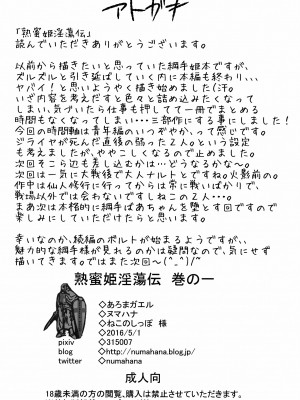 アトガキ
「熟蜜姫淫蕩伝」
読んでいただきありがとうございます。
以前から描きたいと思っていた綱手姫本ですが、
ズルズルと引き延ばしていく内に本編も終わり、、、
ヤバイ!と思いようやく描き始めました(汗。
いざ内容を考えだすと色々と詰め込みたくなって
しまい、気づいたら仕事も押してて一冊でまとめる
時間もなくなってしまい・・・三部作にする事にしました!
今回の時間軸は青年編のいつぞやか、って感じです。
ジライヤが死んだ直後の弱った2人。という設定
も考えましたが、ややこしくなるので止めました。
次回をこらにも差し込むかは…どうなるかな〜。
次回は一気に大戦後で大人ナルトとですね。火影前の。
作中は仙人修行に行ってからは常に戦いばかりで、
戦場以外では会わないですしねこの2人・・・。
まあ次は本格的に綱手ばあちゃんを堕とす回ですので
楽しみにしていただけたらと思います。
幸いなのか、続編のボルトが始まるようですが、、
魅力的な綱手様が見れるのかは疑問なので、気にせず
描いてきます。ではまた次回〜(^_^)/~
熟蜜姫淫蕩伝 巻の一
◇あろまガエル
◇ヌマハナ
◇ねこのしっぽ 様
◇2016/5/1
pixiv ◇315007
blog ◇http://numahana.blog.jp/
twitter ◇@numahana
成人向
18歳未満の方の閲覧、購入は禁止させていただきます。